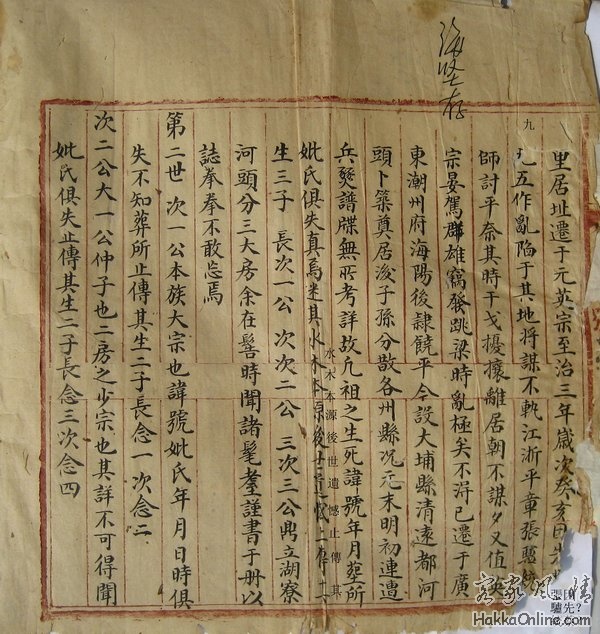 里居址遷于元英宗至治三年歲次癸亥因先
九五作亂陷于其地将謀不軌江浙平章張驢
師討平奈其時干戈擾攘離居朝不謀夕又值英
宗晏駕群雄竊發跳梁時亂極矣不淂已遷于廣
東潮州府海陽後隸饒平今設大埔縣清遠都河
頭卜築奠居後子孫分散各州縣况元末明初連遭
兵燹譜牒無所考詳故凢祖之生死諱號年月墓所
妣氏俱失真焉迷其水木本源後
水木本源後世遺憾止傳其
生三子 長次一公 次次二公 三次三公鼎立湖寮
河頭分三大房余在髫時聞諸耄耋謹書于册以
誌拳拳不敢忘焉
第二世次一公本族大宗也諱號妣氏年月日時俱
失不知葬所止傳其生二子長念一次念二
次二公大一公仲子也二房之少宗也其詳不可得聞
妣氏俱失止傳其生二子長念三次念四
九
因先?
張驢
客家風情
HakkaOnline.com